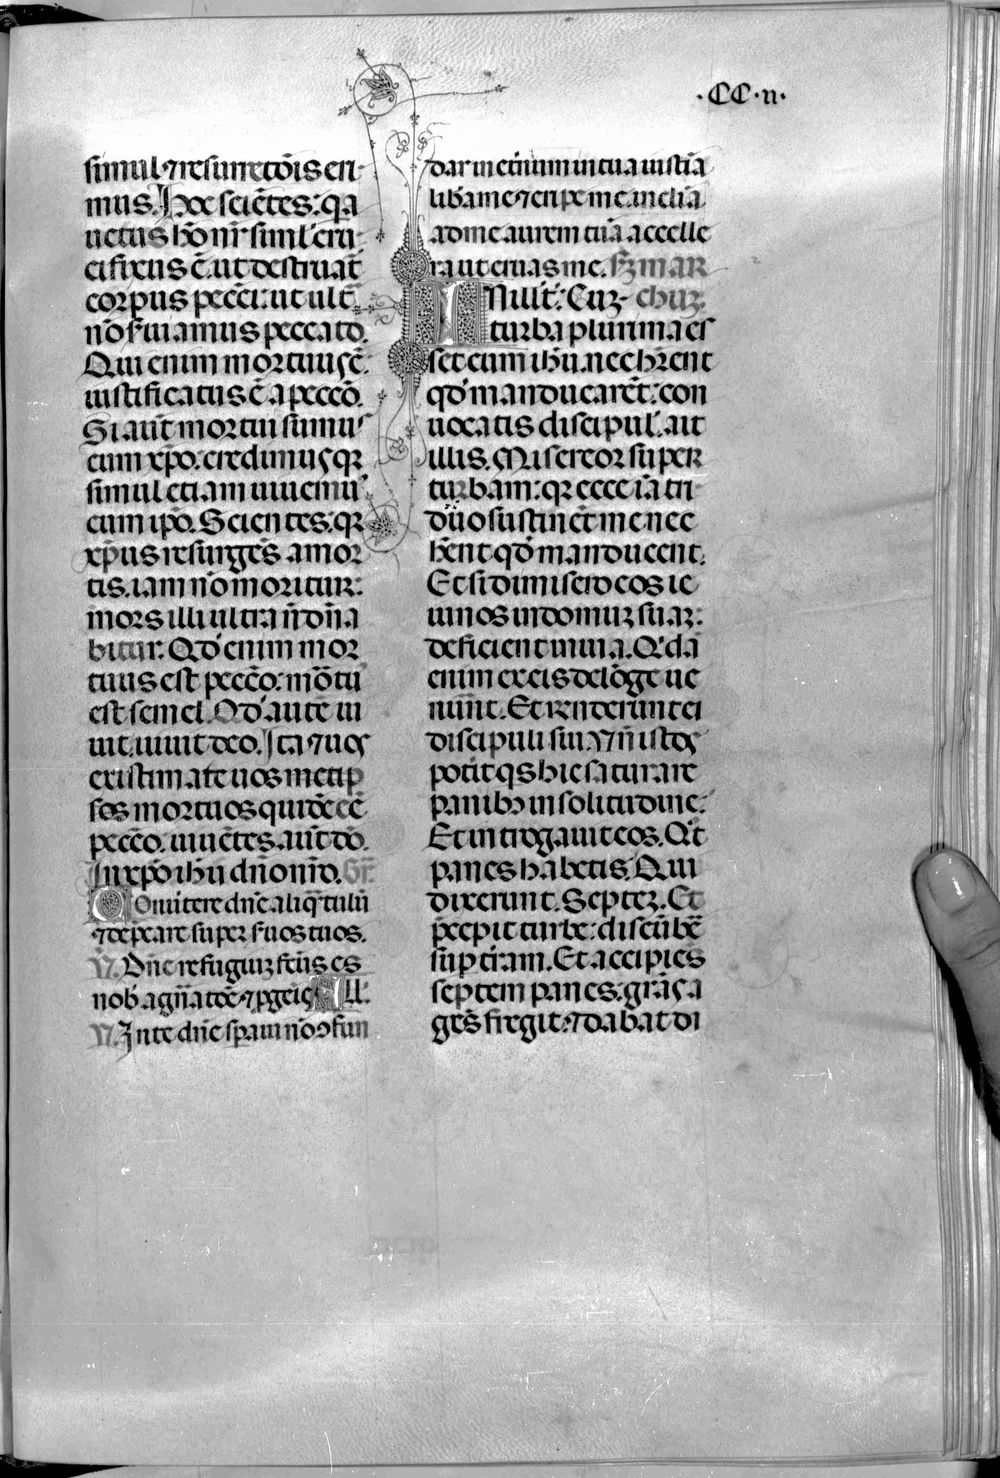 ·CC·ii·
simul ⁊ resurrectōis eri
mus. Hoc sciētes: qa
uetus hō nr̄ simł cru
cifixus ē. ut destruat̄
corpus pecci: ut ult̄
nō ẜuiamus peccato.
Qui enim mortuus ē:
iustificatus ē a peccō.
Si aut̄ mortui sumus
cum xp̄o: credimus qꝛ
simul etiam uiuemus
cum ip̄o. Scientes: qꝛ
xp̄us resurgēs a mor
tis. iam nō moritur:
mors illi ultra n̄ dn̄a
bitur. Qd̓ enim mor
tuus est peccō: mōtu
est semel. Qd̓ autē ui
uit. uiuit deo. Ita ⁊ uos
existimate uos metip
sos mortuos quidē eē
peccō. uiuētes. aut̄ dō.
In xp̄o ihū dn̄o nr̄o. Gr̄.
Conuitere dn̄e aliq̄tulū
⁊ dep̄care super ẜuos tuos.
V. Dn̄e refugiuꝫ fcūs es
nob̓ a gn̄atōē ⁊ p̱geīe All.
V. In te dn̄e sp̱aui nō ↄfun
dar in et̄num in tua iustīa
lib̓a me ⁊ eripe me. inclīa
ad me aurem tuā accelle
ra ut eruas me. S. MAR
In illt̄: Cuꝫ chuꝫ.
turba plurima es
set cum ihū. nec hr̄ent
qd̓ manducarēt: con
uocatis discipuł. ait
illis. Misereor super
turbam: qꝛ ecce iā tri
duo sustinēt me nec
hēnt qd̓ manducent.
Et si dimisero eos ie
iunos in domuꝫ suaꝫ:
deficient in uia. Qd̓a
enim ex eis de lōge ue
nūnt. Et rn̄derunt ei
discipuli sui. Vn̄ istos
potit̓ qs hic saturare
panibꝫ in solitudine.
Et intrrogauit eos. Qt̓
panes habetis. Qui
dixerunt. Septeꝫ. Et
p̄cepit turbe: discūbē
sup̱ t̓ram. Et accipies
septem panes: grās a
gēs fregit. ⁊ dabat di